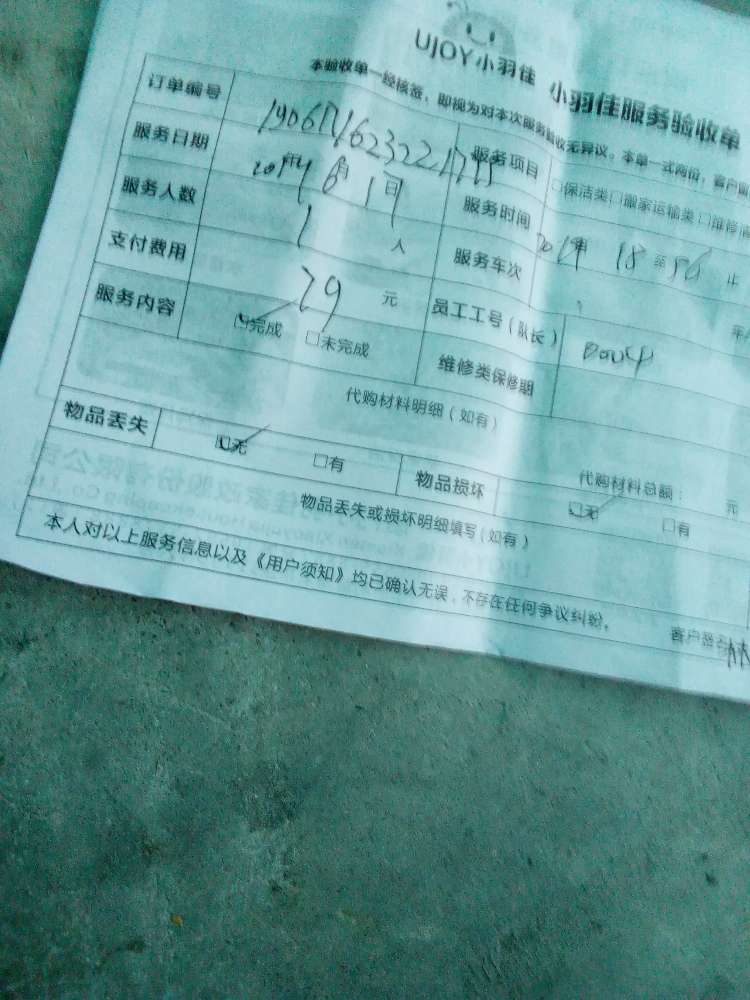 UJOY小羽佳 小羽佳服务验收单
本验收单一经核签，即视为对本次服务验收无异议。本单一式两份，客户
订单编号
服务项目 □保洁类□搬家运输类□维修
服务日期 2019年6月17日
服务时间
服务人数 1 人
服务车次
支付费用 29 元
员工工号（队长）
服务内容 □完成 □未完成
维修类保修期
代购材料明细（如有）
代购材料总额： 元
物品丢失 □无 □有
物品损坏 □无 □有
物品丢失或损坏明细填写（如有）
本人对以上服务信息以及《用户须知》均已确认无误，不存在任何争议纠纷。
客户签名